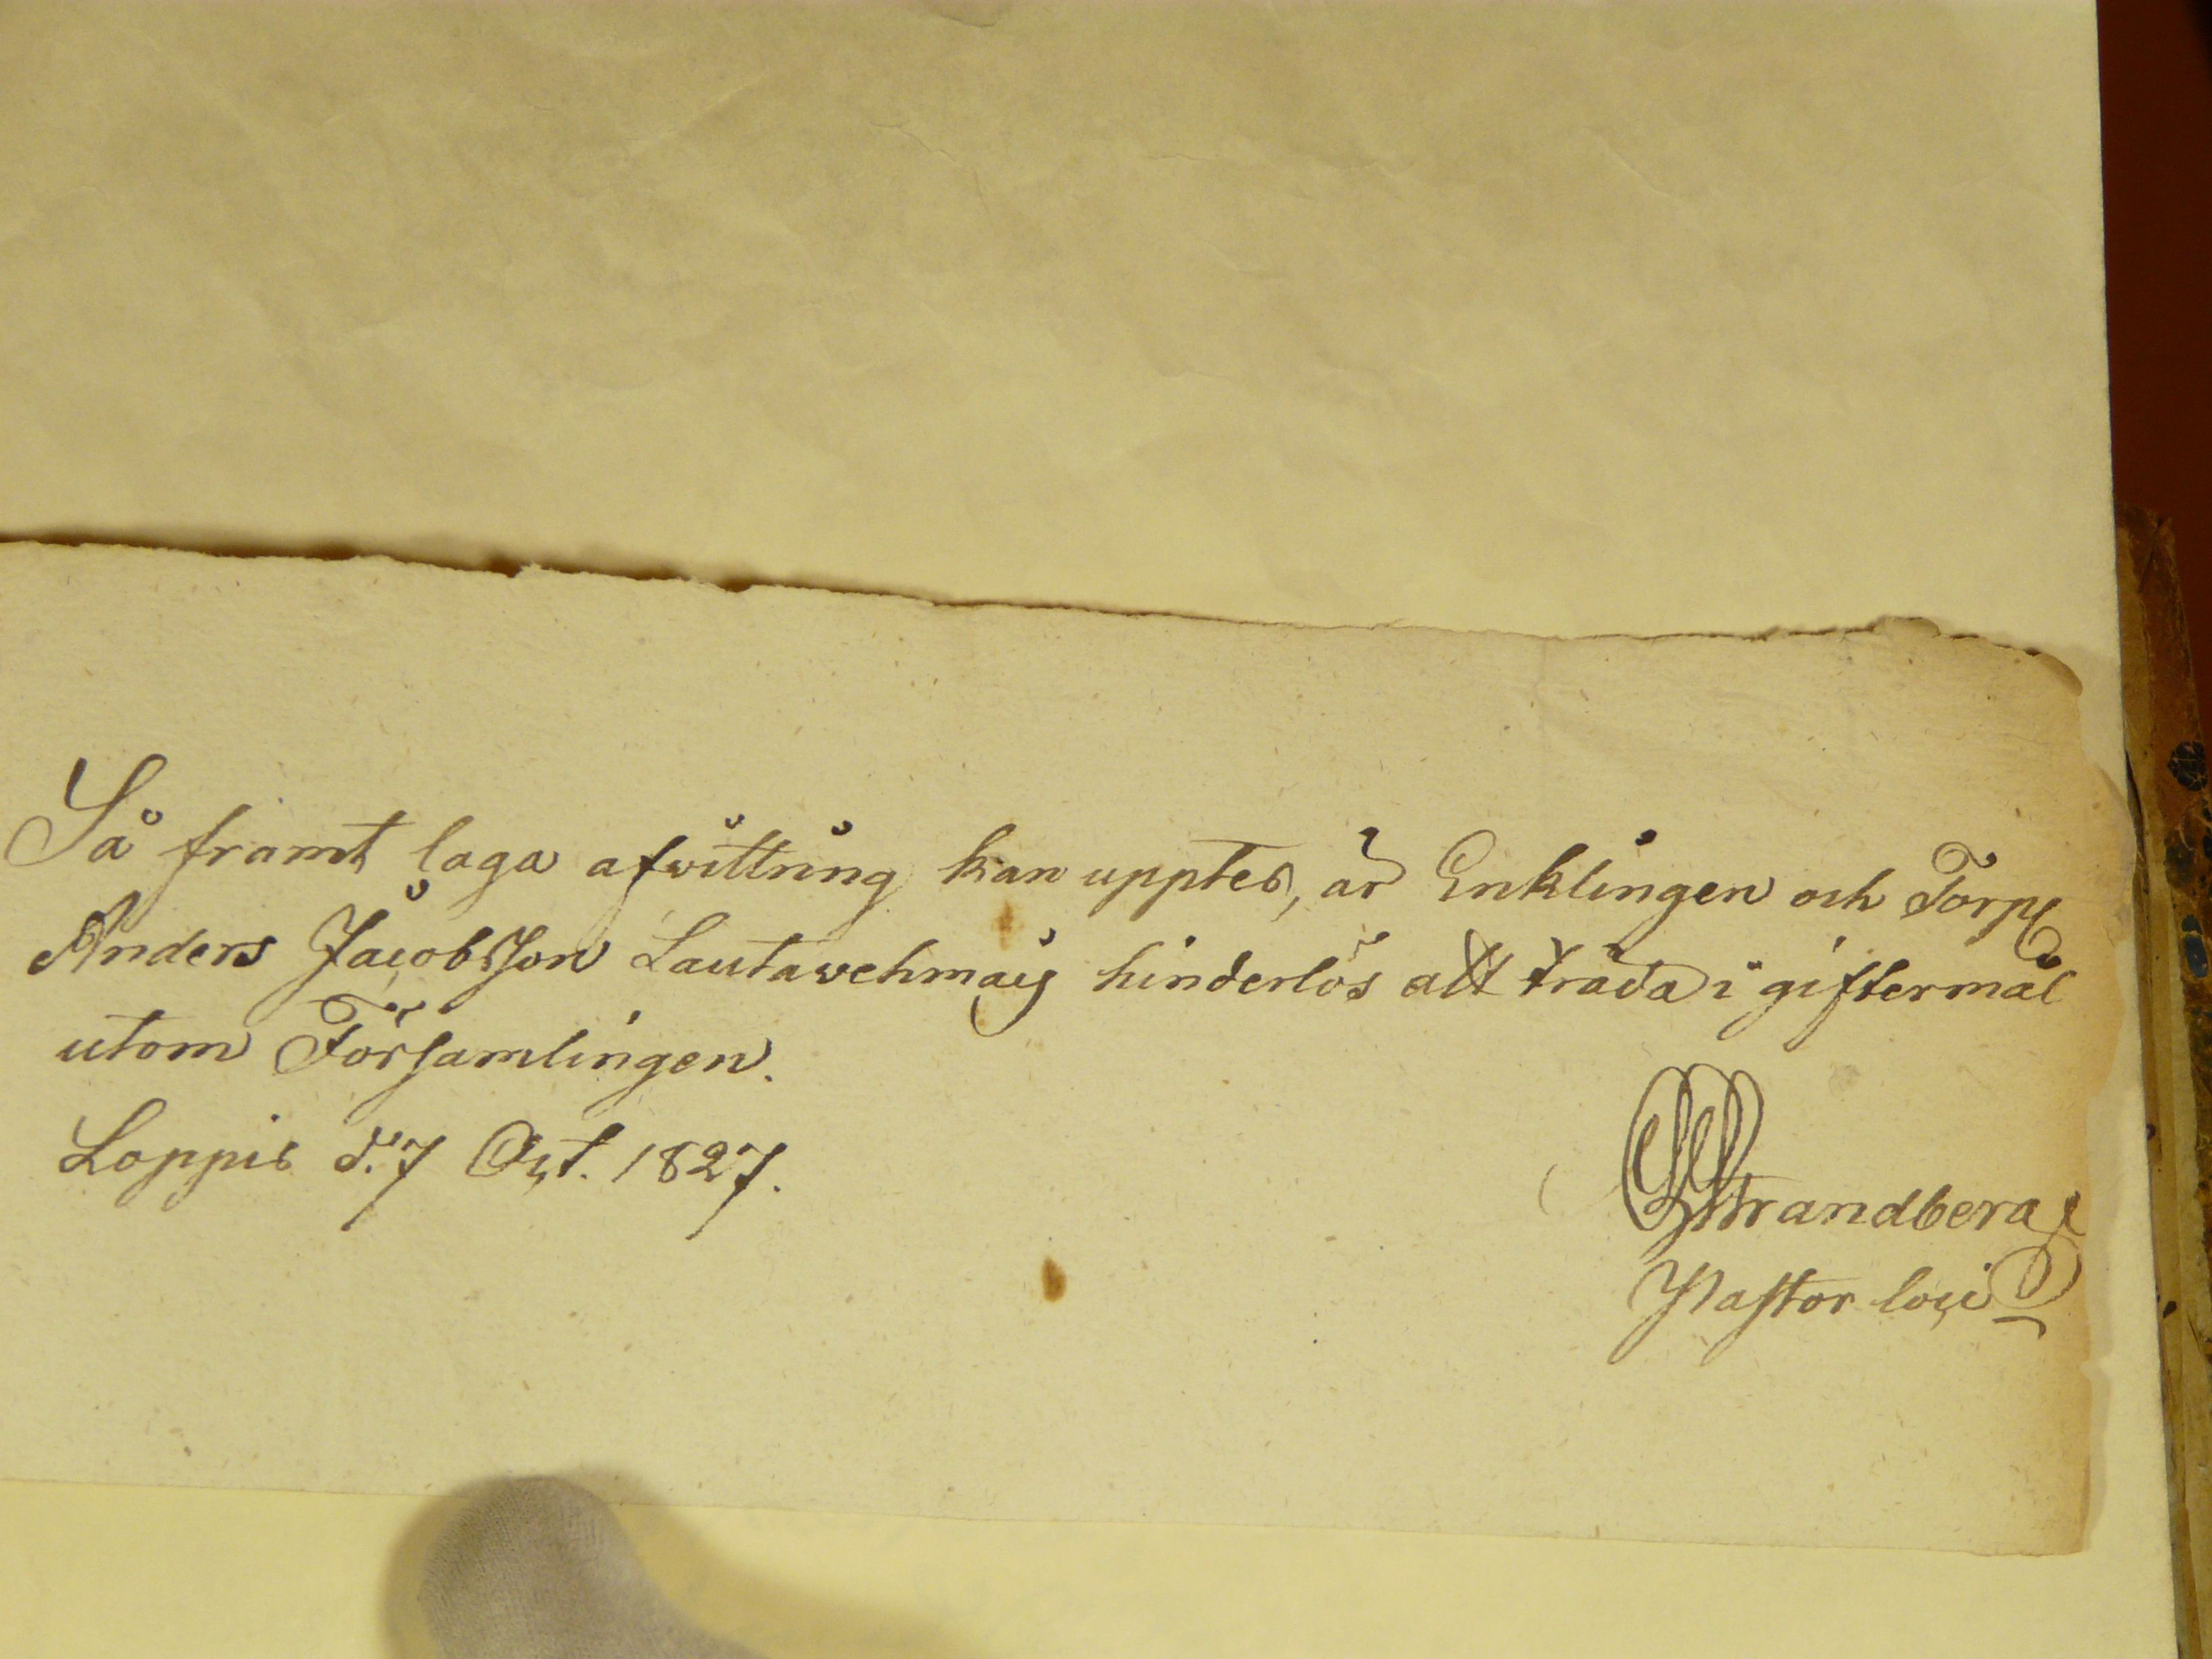 Så framt laga afwittring kan upptes, är Enklingen och Torp.
Anders Jacobsson Lautawehmaij hinderlös att träda i giftermål
utom Församlingen.
Loppis d. 7 Oct. 1827.
Strandberg
Pastor loci